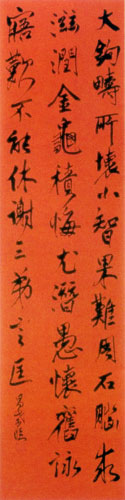 大鈞疇所壞小智果難周石腦求
滋潤金龜積悔尤潛愚懷舊詠
寤歎不能休謝三弟之匡